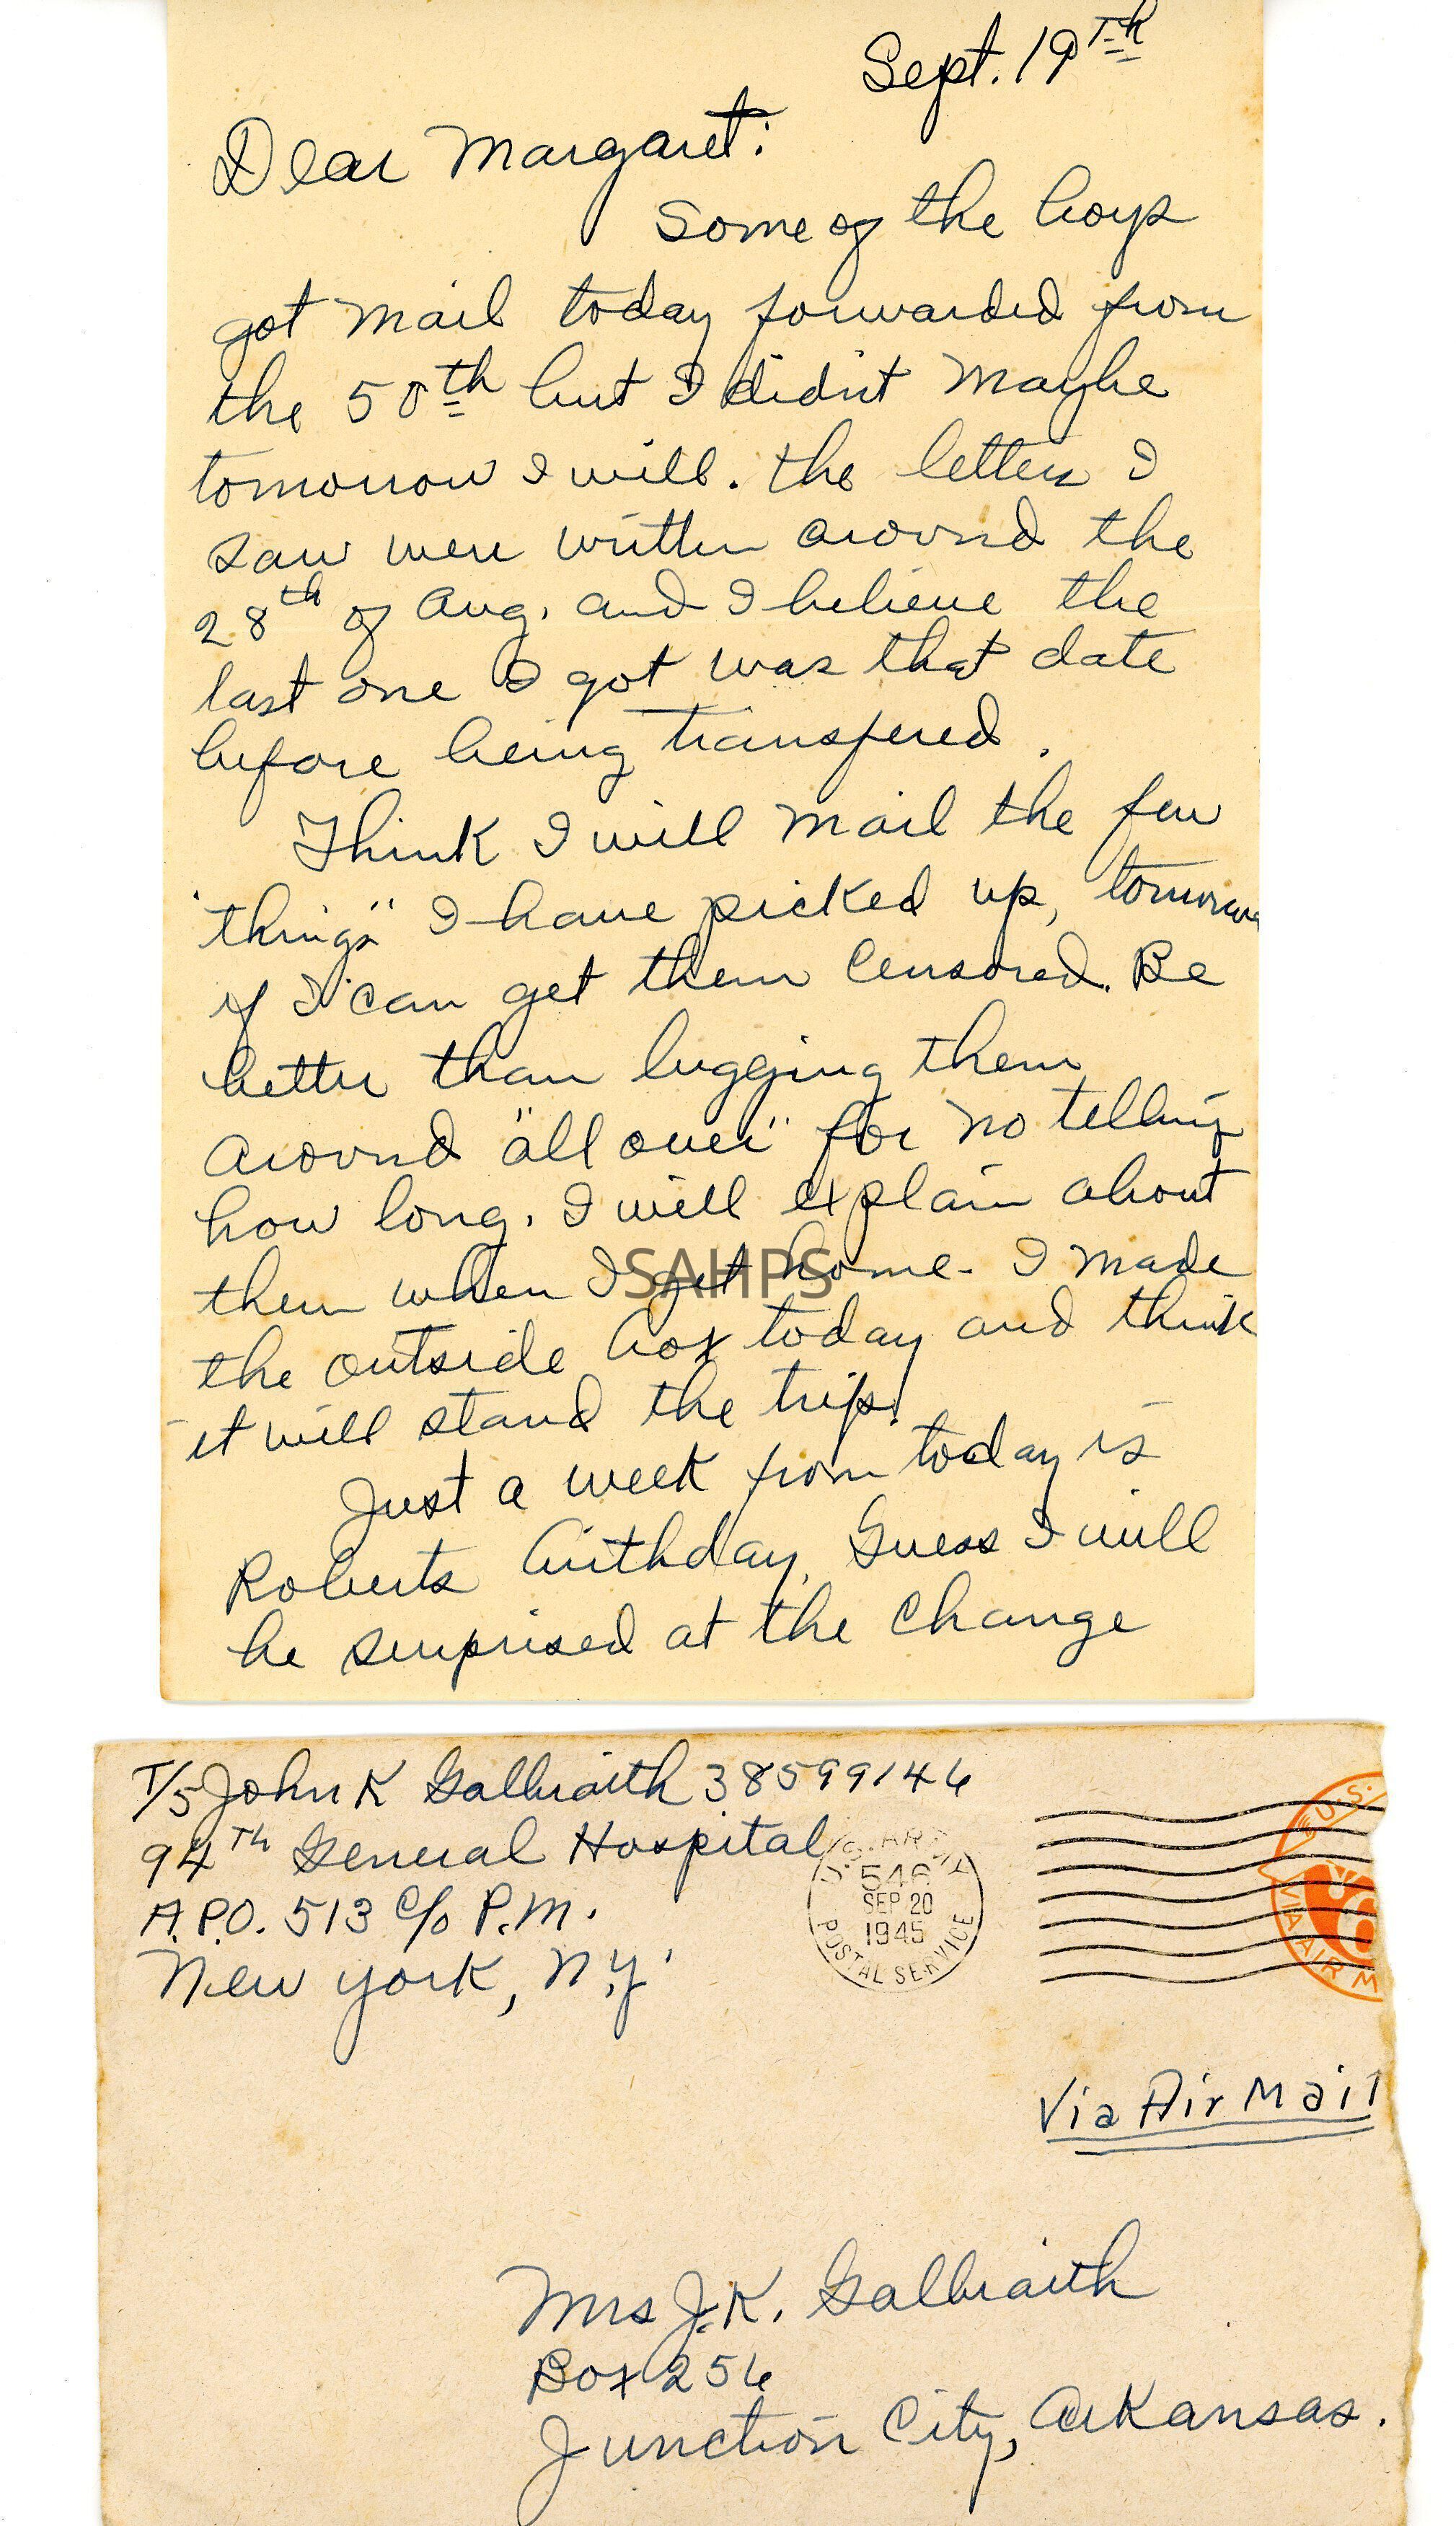 Sept. 19th
Dear Margaret:
Some of the boys
got mail today forwarded from
the 50th but I didn't Maybe
tomorrow I will. the letters I
saw were written around the
28th of Aug. and I believe the
last one I got was that date
before being transfered.
Think I will mail the few
"things" I have picked up, tomorrow
if I can get them censored. Be
better than lugging them
around "all over" for no telling
how long. I will explain about
them when I get home. I made
SAHPS
the outside box today and think
it will stand the trip.
Just a week from today is
Roberts birthday, Guess I will
be surprised at the change
T/5 John K Galbraith 38599146
94th General Hospital
A.P.O. 513 c/o P.M.
New York, N.Y.
U.S. ARMY
546
SEP 20
1945
POSTAL SERVICE
U.S.
6
VIA AIR M
Via Air Mail
Mrs J.K. Galbraith
Box 256
Junction City, Arkansas.